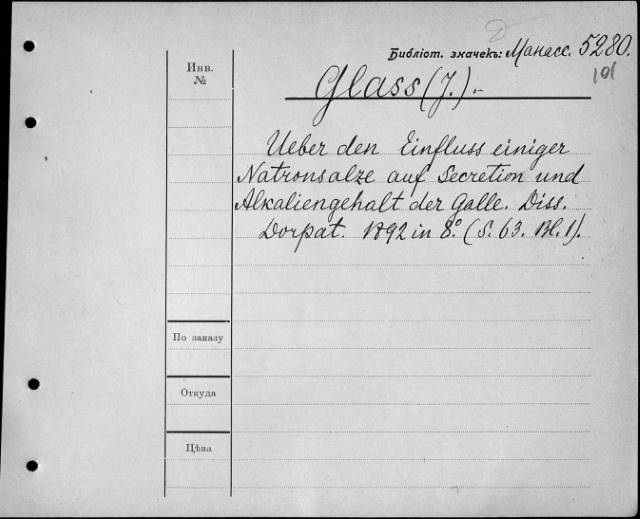 Библіот. значекъ: Манасс. 5280.
101
Инв.
№
Glass (J.).-
Ueber den Einfluss einiger
Natronsalze auf Secretion und
Alkaliengehalt der Galle. Diss.
Dorpat. 1892 in 8.° (S. 63. Bl. 1).
По заказу
Откуда
Цѣна